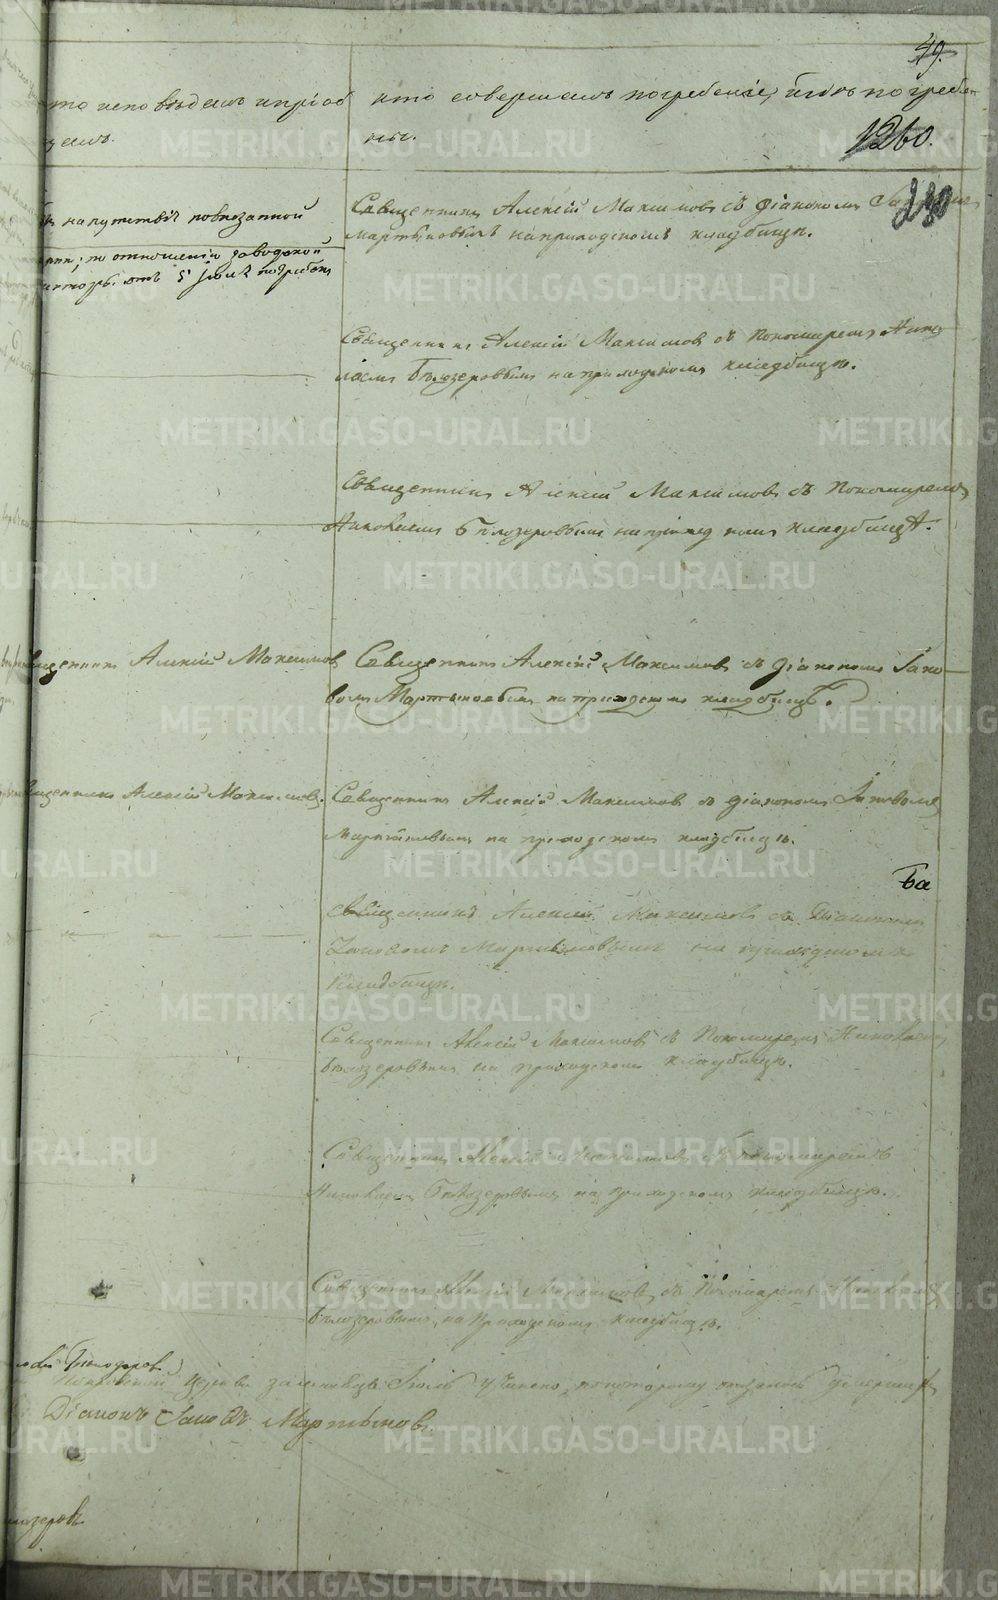 49.
1260.
230
то исповѣдалъ и пріоб
щалъ.
кто совершалъ погребеніе, и гдѣ погребе
ны.
напутствіе
отношенія заводской
конторы отъ 5 Іюля погребенъ
Священникъ Алексій Максимовъ съ діакономъ
Мартыновымъ на приходскомъ кладбищѣ.
Священникъ Алексій Максимовъ съ Пономаремъ Нико
лаемъ Бѣлозеровымъ на приходскомъ кладбищѣ.
Священникъ Алексій Максимовъ съ Пономаремъ
Николаемъ Бѣлозеровымъ на приходскомъ кладбищѣ.
Священникъ Алексій Максимовъ
Священникъ Алексій Максимовъ съ діакономъ Іако
вомъ Мартыновымъ на приходскомъ кладбищѣ.
Священникъ Алексій Максимовъ.
Священникъ Алексій Максимовъ съ діакономъ Іаковомъ
Мартыновымъ на приходскомъ кладбищѣ.
Священникъ Алексій Максимовъ съ Діакономъ
Іаковомъ Мартыновымъ на приходскомъ
кладбищѣ.
Священникъ Алексій Максимовъ съ Пономаремъ Николаемъ
Бѣлозеровымъ на приходскомъ кладбищѣ.
Священникъ Алексій Максимовъ съ Пономаремъ
Николаемъ Бѣлозеровымъ на приходскомъ кладбищѣ.
Священникъ Алексій Максимовъ съ Пономаремъ Николаемъ
Бѣлозеровымъ на Приходскомъ кладбищѣ.
церкви за мѣсяцъ Іюль учинено, по которому
Діаконъ Іаковъ Мартыновъ.
лозеровъ
METRIKI.GASO-URAL.RU